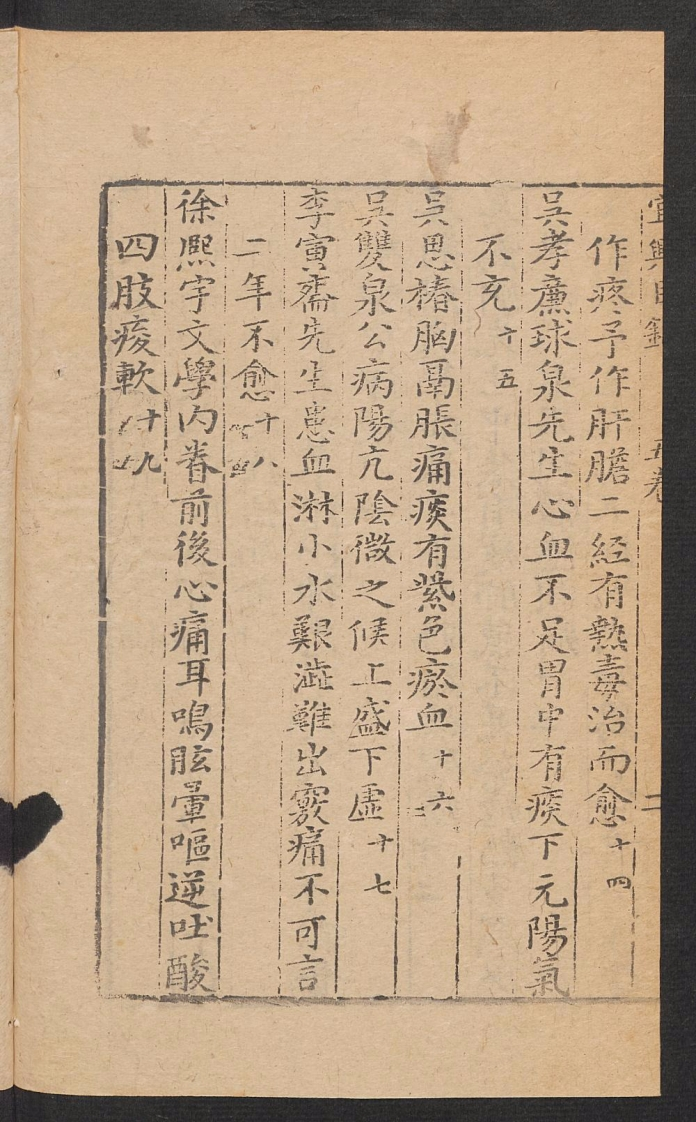 宜興目錄 五卷 二
作疼予作肝膽二經有熱毒治而愈十四
吳孝㢘球泉先生心血不足胃中有痰下元陽氣
不充十五
吳思椿胸鬲脹痛痰有紫色瘀血十六
吳雙泉公病陽亢陰微之候上盛下虛十七
李寅齋先生患血淋小水艱澁難出竅痛不可言
二年不愈十八
徐熙宇文學內眷前後心痛耳鳴眩暈嘔逆吐酸
四肢痠軟十九